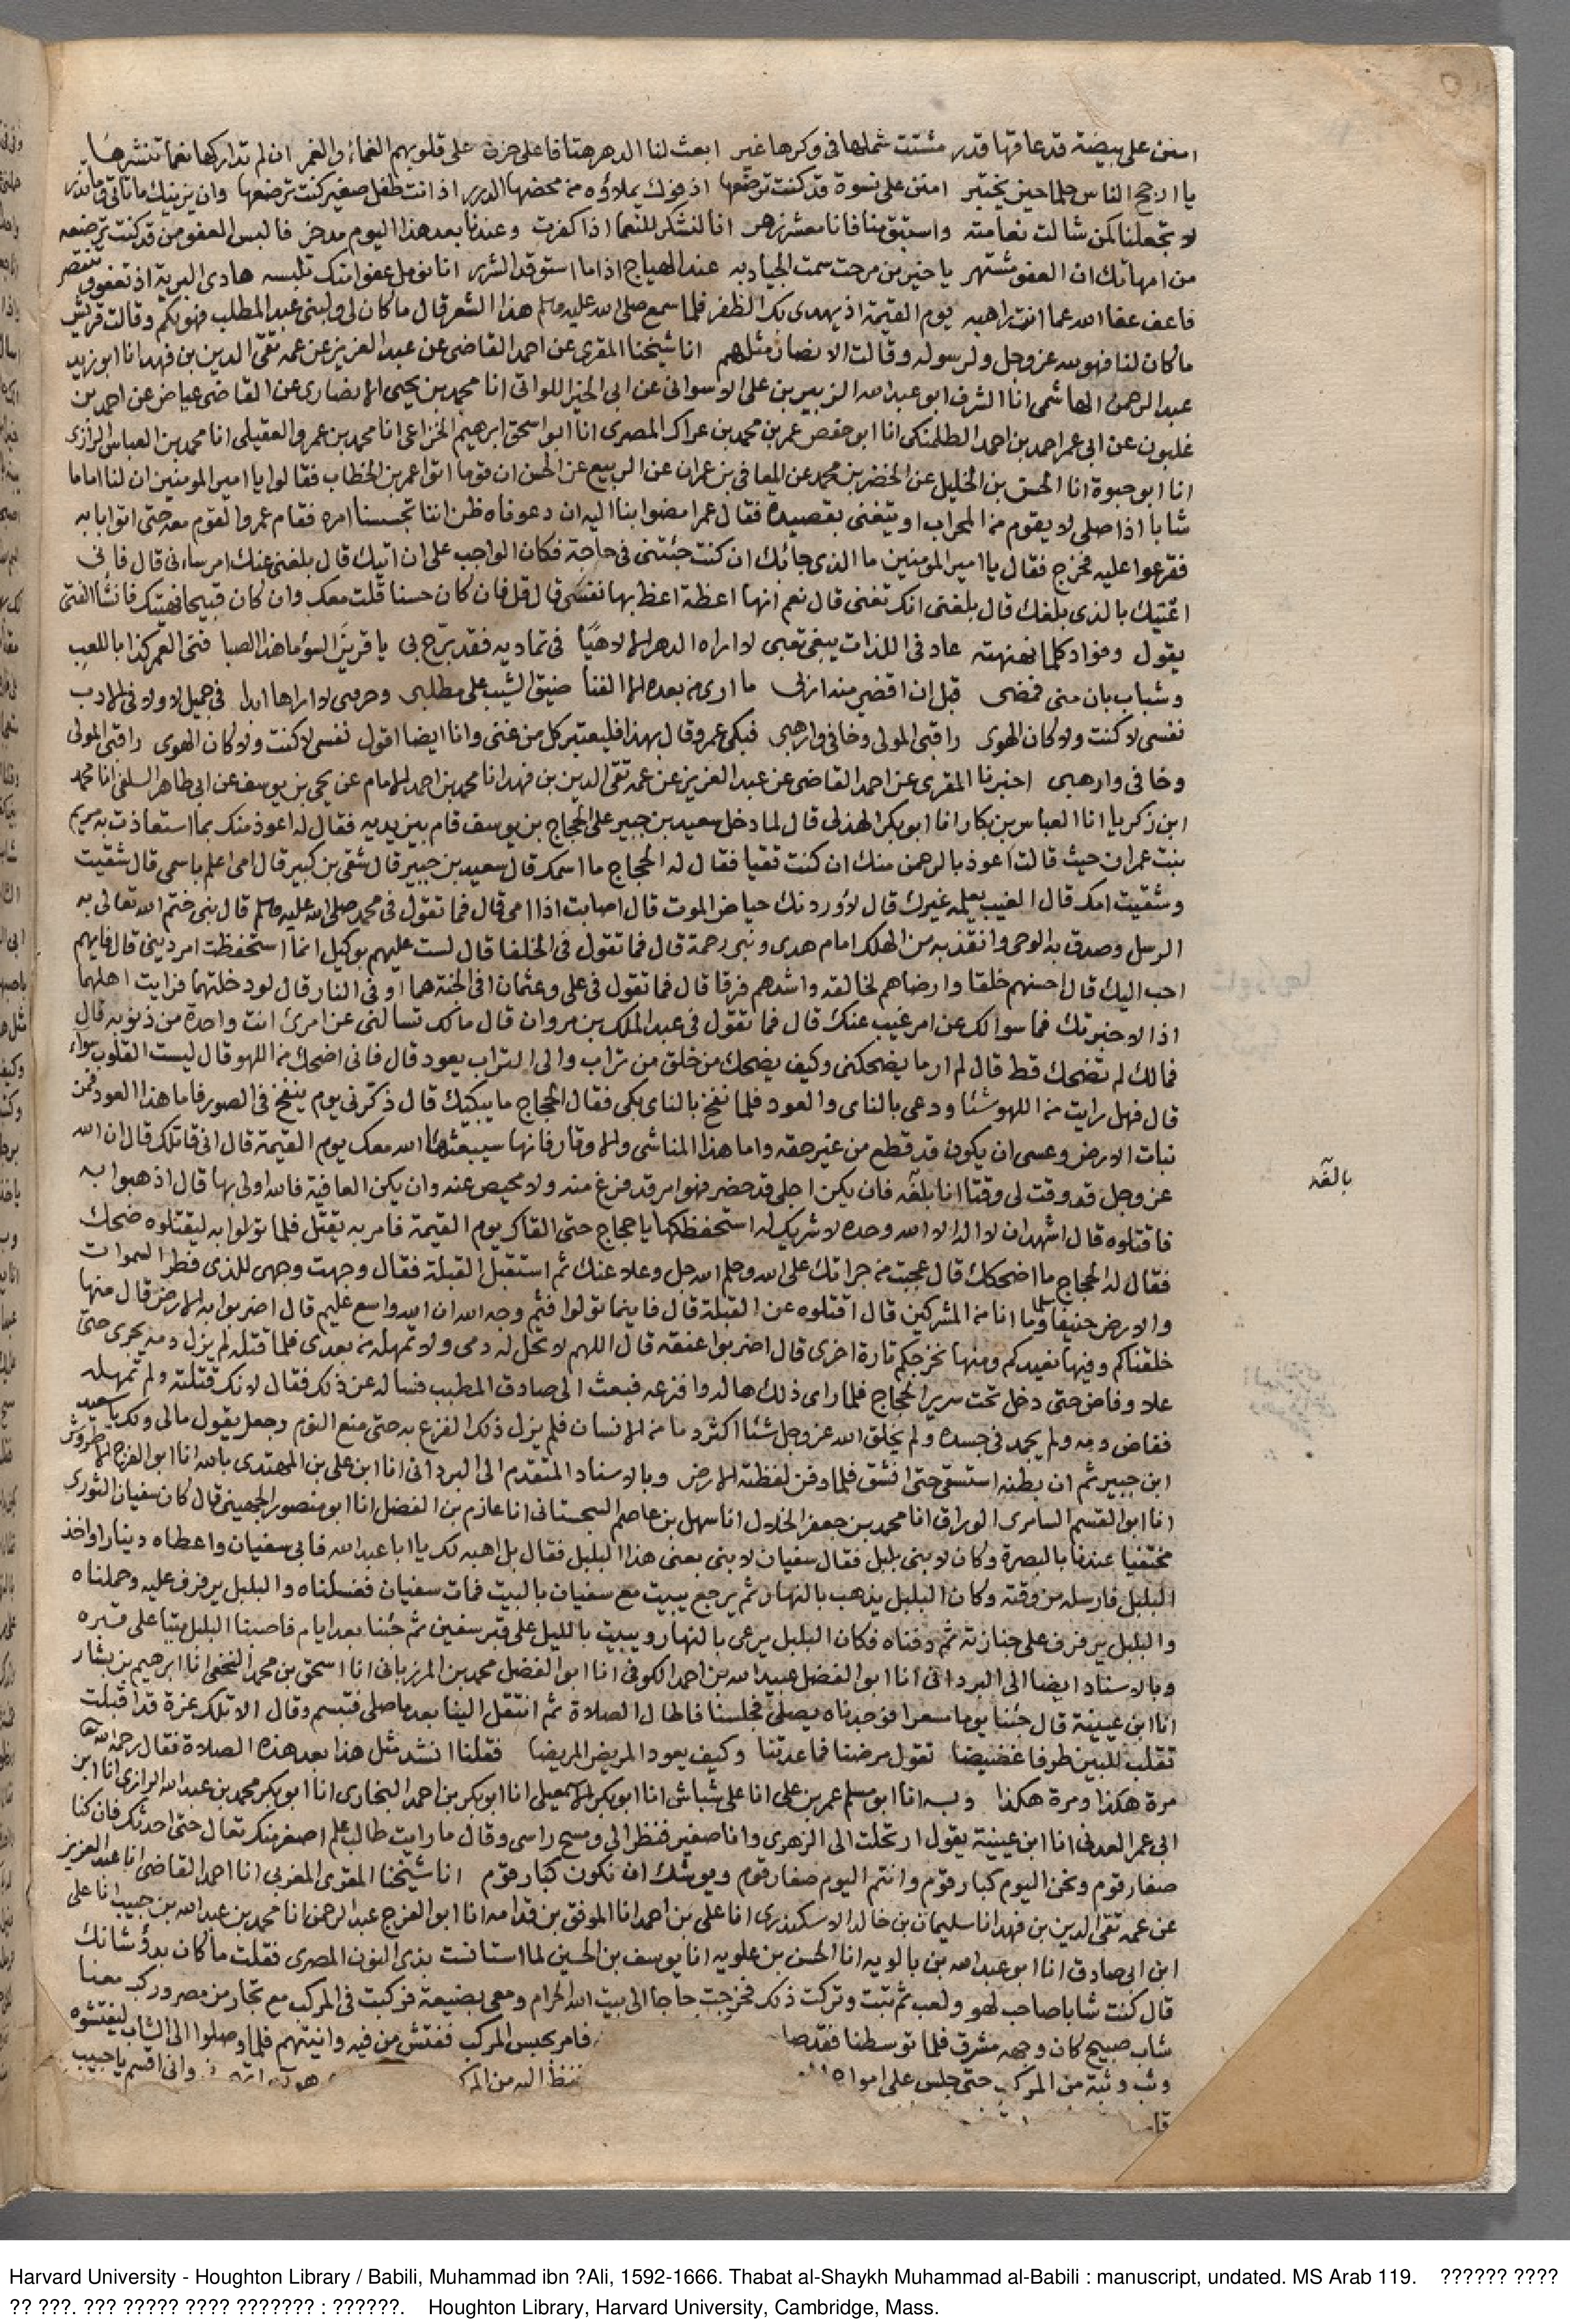 امنن على بيضة قد عاقها قدر مشتت شملها في وكرها غير ابعث لنا الدهر هتافا على حزن على قلوبهم الغماء والغمر ان لم تداركها نعما تنشرها
يا ارجح الناس حلما حين يختبر امنن على نسوة قد كنت ترضعها اذ فوك يملاؤه من محضها الدرر اذ انت طفل صغير كنت ترضعها وان يزينك ما تاتي وما تذر
لا تجعلنا كمن شالت نعامته واستبق منا فانا معشر زهر انا لنشكر للنعما اذا كفرت وعندنا بعد هذا اليوم مدخر فالبس العفو من قد كنت ترضعه
من امهاتك ان العفو مشتهر يا خير من مرحت كمت الجياد به عند الهياج اذا ما استوقد الشرر انا نومل عفوا منك تلبسه هادي البرية اذ تعفو وتنتصر
فاعف عفا الله عما انت راهبه يوم القيمة اذ يهدى لك الظفر فلما سمع صلى الله عليه وسلم هذا الشعر قال ما كان لي ولبني عبد المطلب فهو لكم وقالت قريش
ما كان لنا فهو لله عز وجل ولرسوله وقالت الانصار مثلهم انا شيخنا المقري عن احمد القاضى عن عبد العزيز عن عمه تقى الدين بن فهد انا ابو زيد
عبد الرحمن الهاشمى انا الشرف ابو عبد الله الزبير بن على الاسوانى عن ابى الحيز اللواتى انا محمد بن يحيى الانصارى عن القاضى عياض عن احمد بن
غلبون عن ابى عمر احمد بن احمد الطلمنكى انا ابو حفص عمر بن محمد بن عراك المصرى انا ابو اسحق ابرهيم الخزاعى انا محمد بن عمر والعقيلى انا محمد بن العباس الرازى
انا ابو حبوة انا الحسن بن الخليل عن الخضر بن محمد عن المعافى بن عمران عن الربيع عن الحسن ان قوما اتوا عمر بن الخطاب فقالوا يا امير المومنين ان لنا اماما
شابا اذا صلى لا يقوم من المحراب او يتغنى بقصيدة فقال عمر امضوا بنا اليه ان دعوناه ظن اننا تجسسنا امره فقام عمر والقوم معه حتى اتوا بابه
فقرعوا عليه فخرج فقال يا امير المومنين ما الذى جائك ان كنت جئتنى فى حاجة فكان الواجب على ان اتيك قال بلغنى عنك امر ساءنى قال فانى
اعتبك بالذى بلغك قال بلغنى انك تغنى قال نعم انها اعظة اعظ بها نفسى قال قل فان كان حسنا قلت معك وان كان قبيحا نهيتك فانشا الفتى
يقول وفواد كلما نهنهته عاد فى اللذات يبغى تعبى لا اراه الدهر الا لاهيا فى تماديه فقد برح بى يا قرين السؤ ما هذا الصبا فنى العمر كذا باللعب
وشباب بان منى فمضى قبل ان اقضى منه اربى ما ارى من بعده الا الفنا ضيق الشيب على مطلبى وحرمى لا اراها ابدا فى جميل لا ولا فى الادب
نفسى لا كنت ولا كان الهوى راقبى المولى وخافى وارهبى فبكى عمر وقال بهذا فليعتبر كل من غنى وانا ايضا اقول نفسى لا كنت ولا كان الهوى راقبى المولى
وخافى وارهبى اخبرنا المقرى عن احمد القاضى عن عبد العزيز عن عمه تقى الدين بن فهد انا محمد بن احمد الامام عن يحى بن يوسف عن ابى طاهر السلفى انا محمد
ابن زكريا انا العباس بن بكار انا ابو بكر الهذلى قال لما دخل سعيد بن جبير على الحجاج بن يوسف قام بين يديه فقال له اعوذ منك بما استعاذت به مريم
بنت عمران حيث قالت اعوذ بالرحمن منك ان كنت تقيا فقال له الحجاج ما اسمك قال سعيد بن جبير قال شقى بن كسير قال امى اعلم باسمى قال شقيت
وشقيت امك قال الغيب يعلمه غيرك قال لاوردنك حياض الموت قال اصابت اذا امى قال فما تقول فى محمد صلى الله عليه وسلم قال نبى ختم الله تعالى به
الرسل وصدق به الوحى وانقذ به من الهلك امام هدى ونبى رحمة قال فما تقول فى الخلفا قال لست عليهم بوكيل انما استحفظت امر دينى قال فايهم
احب اليك قال احسنهم خلقا وارضاهم لخالقه واشدهم فرقا قال فما تقول فى على وعثمان افى الجنة هما او فى النار قال لو دخلتهما فرايت اهلهما
اذا لاخبرتك فما سوالك عن امر غيب عنك قال فما تقول فى عبد الملك بن مروان قال مالك تسالنى عن امرئ انت واحدة من ذنوبه قال
فمالك لم تضحك قط قال لم ار ما يضحكنى وكيف يضحك من خلق من تراب والى التراب يعود قال فانى اضحك من اللهو قال ليست القلوب سواء
قال فهل رايت من اللهو شئا ودعى بالناى والعود فلما نفخ بالناى بكى فقال الحجاج ما يبكيك قال ذكرنى يوم ينفخ فى الصور فاما هذا العود فمن
نبات الارض وعسى ان يكون قد قطع من غير حقه واما هذا المناشى والاوتار فانها سيبعثها الله معك يوم القيمة قال انى قاتلك قال ان الله
عز وجل قد وقت لى وقتا انا بالغه فان يكن اجلى قد حضر فهو امر قد فرغ منه ولا محيص عنه وان يكن العافية فالله اولى بها قال اذهبوا به
بالغه
فاقتلوه قال اشهد ان لا اله الا الله وحده لا شريك له استحفظكها يا حجاج حتى القاك يوم القيمة فامر به يقتل فلما تولوا به ليقتلوه ضحك
فقال له الحجاج ما اضحكك قال عجبت من جراتك على الله وحلم الله جل وعلا عنك ثم استقبل القبلة فقال وجهت وجهى للذى فطر السموات
والارض حنيفا وما انا من المشركين قال اقتلوه عن القبلة قال فاينما تولوا فثم وجه الله ان الله واسع عليم قال اضربوا به الارض قال منها
خلقناكم وفيها نعيدكم ومنها نخرجكم تارة اخرى قال اضربوا عنقه قال اللهم لا تحل له دمى ولا تمهله من بعدى فلما قتله لم يزل دمه يجرى حتى
علا وفاض حتى دخل تحت سرير الحجاج فلما راى ذلك هاله وافزعه فبعث الى صادق المطبب فساله عن ذلك فقال لانك قتلته ولم تمهله
ففاض دمه ولم يجمد فى جسده ولم يخلق الله عز وجل شئا اكثر دما من الانسان فلم يزل ذلك الفزع به حتى منع النوم وجعل يقول مالى ولك يا سعيد
ابن جبير ثم ان بطنه استسقى حتى انشق فلما دفن لفظته الارض وبالاسناد المتقدم الى البردانى انا ابن على بن المهتدى بالله انا ابو الفرج الاطروش
انا ابو القسم السامرى الوراق انا محمد بن جعفر الخلال انا سهل بن عاصم السجستانى انا عازم بن الفضل انا ابو منصور الجهينى قال كان سفيان الثورى
مختفيا عندنا بالبصرة وكان لابنى بلبل فقال سفيان لابنى بعنى هذا البلبل فقال بل اهبه لك يا ابا عبد الله فابى سفيان واعطاه دينارا واخذ
البلبل فارسله من وقته وكان البلبل يذهب بالنهار ثم يرجع يبيت مع سفيان بالبيت فمات سفيان فغسلناه والبلبل يرفرف عليه وحملناه
والبلبل يرفرف على جنازته ثم دفناه فكان البلبل يرعى بالنهار ويبيت بالليل على قبر سفين ثم جئنا بعد ايام فاصبنا البلبل ميتا على قبره
وبالاسناد ايضا الى البردانى انا ابو الفضل عبيد الله بن احمد الكوفى انا ابو الفضل محمد بن المرزبانى انا اسحق بن محمد النخعى انا ابرهيم بن بشار
انا ابن عيينة قال جئنا يوما مسعرا فوجدناه يصلى فجلسنا فاطال الصلاة ثم انتقل الينا بعد ما صلى فتبسم وقال الا تلك عزة قد اقبلت
تقلب للبين طرفا غضيضا تقول مرضنا فما عدتنا وكيف يعود المريض المريضا فقلنا انشد مثل هذا بعد هذه الصلاة فقال رحمه الله
مرة هكذا ومرة هكذا وبه انا ابو مسلم عمر بن على انا على شباش انا ابو بكر الاسمعيلى انا ابو بكر بن احمد البخارى انا ابو بكر محمد بن عبد الله الرازى انا ابن
ابى عمر العدنى انا ابن عيينة يقول ارتحلت الى الزهرى وانا صغير فنظر الي ومسح راسى وقال ما رايت طالب علم اصغر منك تعال حتى احدثك فان كنا
صغار قوم ونحن اليوم كبار قوم وانتم اليوم صغار قوم ويوشك ان تكون كبار قوم انا شيخنا المقرى المغربى انا احمد القاضى انا عبد العزيز
عن عمه تقى الدين بن فهد انا سليمان بن خالد الاسكندرى انا على بن احمد انا الموفق بن قدامه انا ابو الفرج عبد الرحمن انا محمد بن عبد الله بن حبيب انا على
ابن ابى صادق انا ابو عبد الله بن بالويه انا الحسن بن علويه انا يوسف بن الحسين لما استانست بذى النون المصرى فقلت ما كان بدؤ شانك
قال كنت شابا صاحب لهو ولعب ثم تبت وتركت ذلك فخرجت حاجا الى بيت الله الحرام ومعى بضيعة فركبت فى المركب مع تجار من مصر وركب معنا
شاب صبيح كان وجهه مشرق فلما توسطنا فقد صا فامر بحبس المركب ففتش من فيه وانيتهم فلما وصلوا الى الشاب ليفتشوه
وثب وثبة من المركب حتى جلس على امواج وانى اقسم يا حبيب